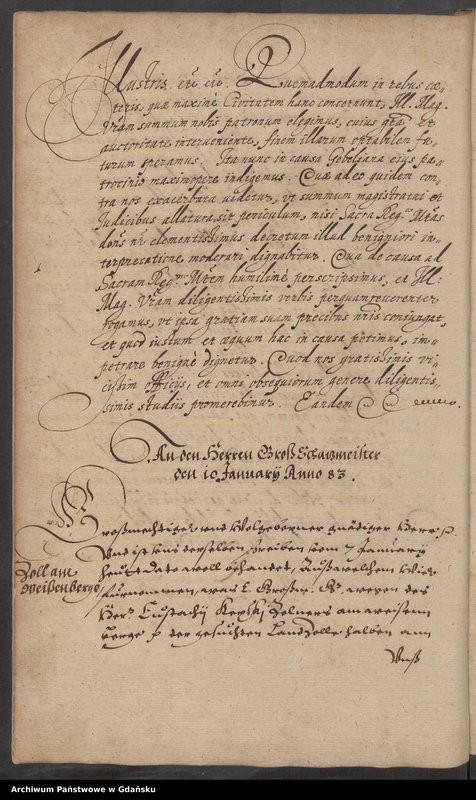 Illustris etc etc. Quemadmodum in rebus cæ-
teris, quæ maximè Civitatem hanc concernunt, Ill. Mag.
Vram summum nobis patronum elegimus, cuius gra et
auctoritate interveniente, finem illarum optabilem fu-
turum speramus. Ita nunc in causa Gobeliana eius pa-
trocinio maximopere indigemus. Quæ adeo quidem con-
tra nos exacerbata uidetur, vt summum magistratui et
Iudicibus allatura sit periculum, nisi Sacra Reg. Mtas
dons nr clementissimus decretum illud benigniori in-
terpretatione moderari dignabitur. Qua de causa ad
Sacram Regm Mtem humilimè perscripsimus, et Ill:
Mag. Vram diligentissimis verbis perquam reverenter
rogamus, vt ipsa gratiam suam precibus nris coniungat,
et quod iustum et æquum hac in causa petimus, im-
petrare benignè dignetur. Quod nos gratissimis vi-
cissim officijs, et omni obsequiorum genere diligentis-
simis studiis promerebimur. Eandem
An den Herren Groß Schatzmeister
den 10 January Anno 83.
Großmechtiger und Wolgeborner gnediger Herr p
Uns ist seins derselben schreiben vom 7 January
Zoll am
Weißenberge
heut dato woll behandet, Außwelchem Wir
furnommen, was E. Großm. G. wegen des
Hern Eustachij Zolners am weissenn
berge der gesuchten Landzolle halben ann
Unß
Archiwum Państwowe w Gdańsku